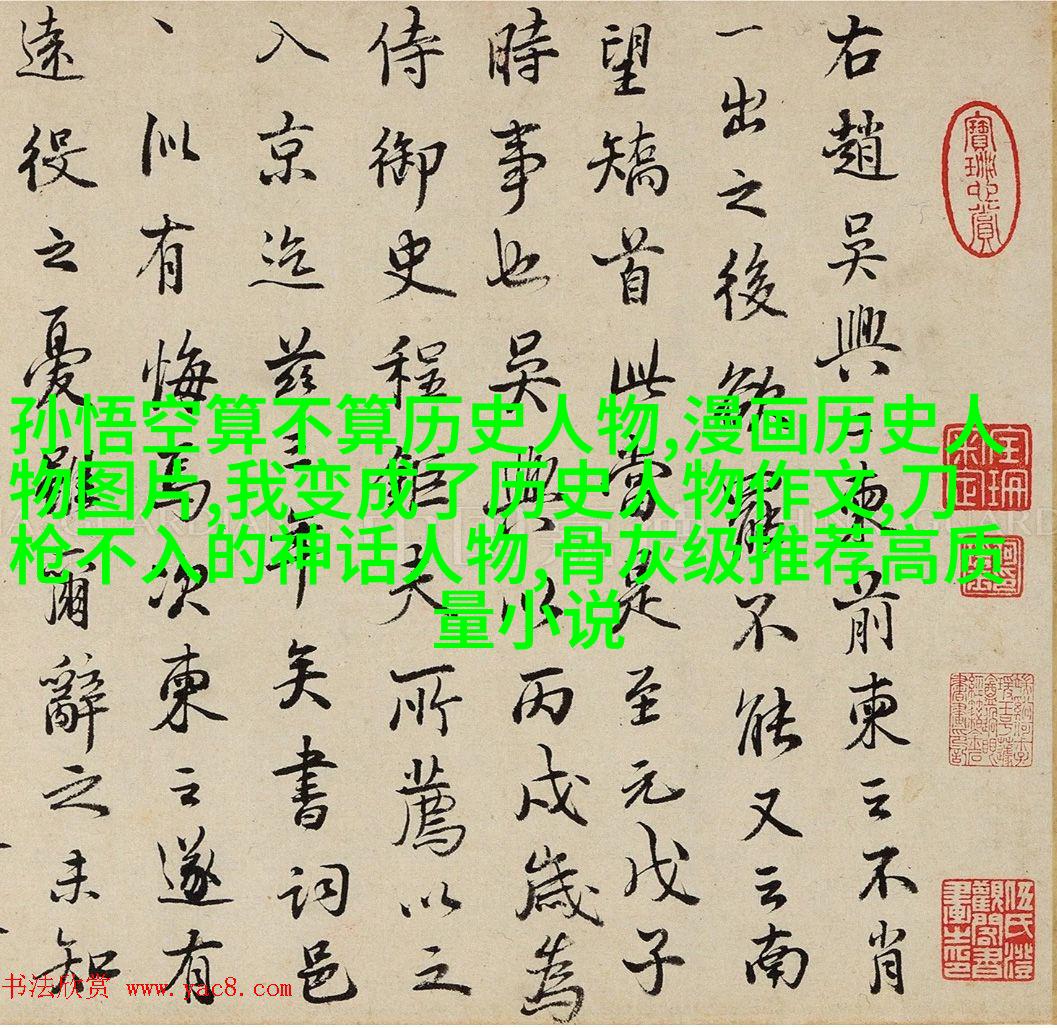 右趙吳興二柬前柬云不肖
一出之後欲罷不能又云南
望矯首此當是至元戊子
時事也吳興以丙戌歲為
侍御史程鉅夫所薦以之
入京迄茲三年矣書詞邑
、似有悔焉次柬云遂有
遠役之憂雖爾辭之未知
孙悟空算不算历史人物,漫画历史人
物图片,我变成了历史人物作文,刀
枪不入的神话人物,骨灰级推荐高质
量小说
书法欣赏 www.yac8.com